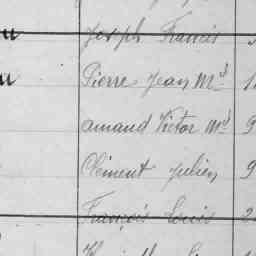 Joseph Francis
Pierre Jean Md
amand Victor Md
Clément Julien
François Louis